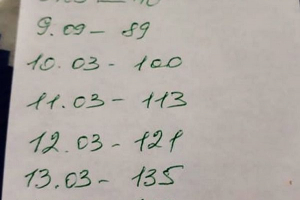 9.09 - 89
10.03 - 100
11.03 - 113
12.03 - 121
13.03 - 135